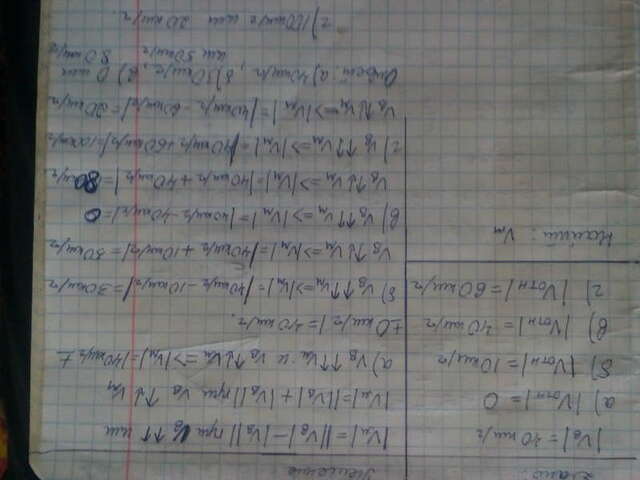 Дано:
|Vв| = 40 км/ч
а) |Vотн| = 0
б) |Vотн| = 10 км/ч
в) |Vотн| = 40 км/ч
г) |Vотн| = 60 км/ч
Найти: Vм
Решение
|Vм| = ||Vв| - |Vв|| при Vв ↑↑ или
|Vм| = ||Vв| + |Vв|| при Vв ↑↓ Vм
а) Vв ↑↑ Vм и Vв ↑↓ Vм => |Vм| = |40 км/ч ±
± 0 км/ч| = 40 км/ч.
б) Vв ↑↑ Vм => |Vм| = |40 км/ч - 10 км/ч| = 30 км/ч
Vв ↑↓ Vм => |Vм| = |40 км/ч + 10 км/ч| = 50 км/ч
в) Vв ↑↑ Vм => |Vм| = |40 км/ч - 40 км/ч| = 0
Vв ↑↓ Vм => |Vм| = |40 км/ч + 40 км/ч| = 80 км/ч
г) Vв ↑↑ Vм => |Vм| = |40 км/ч + 60 км/ч| = 100 км/ч
Vв ↑↓ Vм => |Vм| = |40 км/ч - 60 км/ч| = 20 км/ч
Ответ: а) 40 км/ч, б) 30 км/ч, в) 0 или
или 50 км/ч 80 км/ч
г) 100 км/ч или 20 км/ч